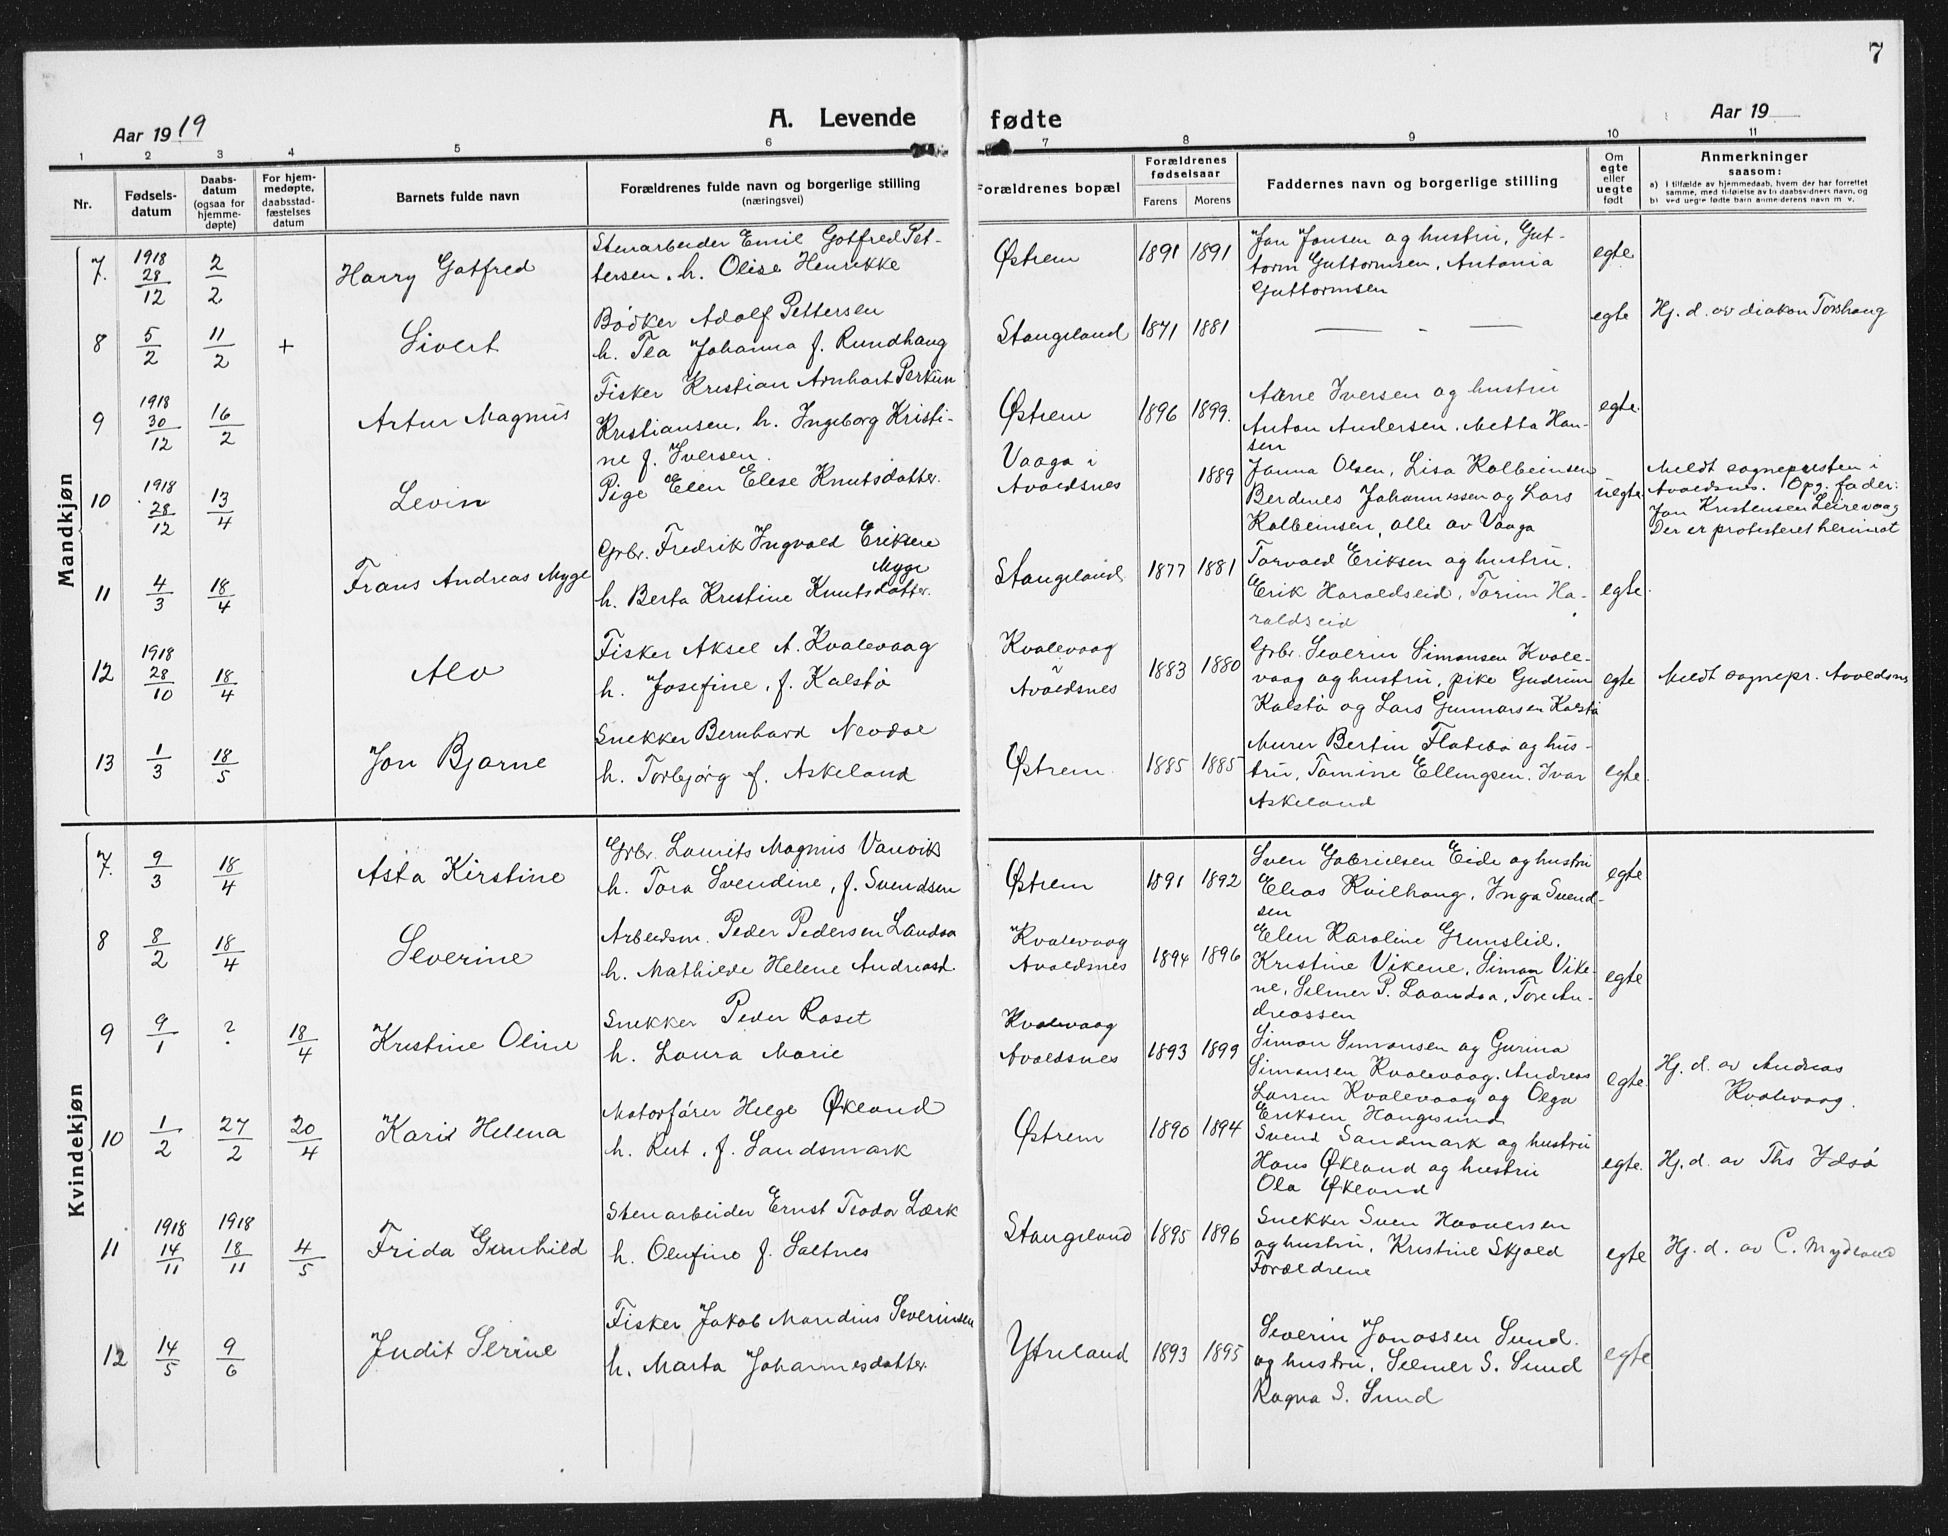 7
Aar 1919 A. Levende fødte Aar 19
1 2 3 4 5 6 7 8 9 10 11
Nr. Fødsels-datum Daabs-datum (ogsaa for hjemme-døpte) For hjem-medøpte, daabsstad-fæstelses datum Barnets fulde navn Forældrenes fulde navn og borgerlige stilling (næringsvei) Forældrenes bopæl Forældrenes fødselsaar Farens Morens Faddernes navn og borgerlige stilling Om egte eller uegte født Anmerkninger saasom:
a) I tilfælde av hjemmedaab, hvem der har forrettet samme, med tilføielse av to daabsvidners navn, og
b) ved uegte fødte barn anmelderens navn m. v.
Mandkjøn
7. 1918 28/12 2/2 Harry Gotfred Stenarbeider Emil Gotfred Pet-
tersen, h. Olise Henrikke Østrem 1891 1891 Jon Jonsen og hustru, Gut-
torm Guttormsen, Antonia
Guttormsen egte
8 5/2 11/2 + Sivert Bødker Adolf Pettersen
h. Tea Johanna f. Rundhaug Stangeland 1871 1881 — - — egte Hj. d. av diakon Torshaug
9 1918 30/12 16/2 Artur Magnus Fisker Kristian Arnhart Perkun
Kristiansen, h. Ingeborg Kristi-
ne f. Iversen. Østrem 1896 1899. Arne Iversen og hustru
Anton Andersen, Metta Han-
sen egte
10 1918 28/12 13/4 Levin Pige Elen Elese Knutsdatter. Vaaga i
Avaldsnes 1889 Janna Olsen, Lisa Kolbeinsen
Berdines Johannessen og Lars
Kolbeinsen, alle av Vaaga uegte Meldt sognepresten i
Avaldsnes. Opg. fader:
Jon Kristensen Leirevaag
Der er protesteret herimot
11 4/3 18/4 Frans Andreas Myge Grbr. Fredrik Ingvald Eriksen
Myge
h. Berta Kristine Knutsdatter. Stangeland 1877 1881 Torvald Eriksen og hustru,
Erik Haraldseid, Torine Ha-
raldseid egte
12 1918 28/10 18/4 Alv Fisker Aksel A. Kvalevaag
h. Josefine, f. Kalstø Kvalevaag
i
Avaldsnes 1883 1880 Grbr. Severin Simonsen Kvale-
vaag og hustru, pike Gudrun
Kalstø og Lars Gunnarsen Kalstø egte Meldt sognepr. Avaldsnes
13 1/3 18/5 Jon Bjarne Snekker Bernhard Nevdal
h. Torbjørg f. Askeland Østrem 1885 1885 Murer Bertin Flatebø og hus-
tru, Tomine Ellingsen. Ivar
Askeland egte
Kvindekjøn
7. 9/3 18/4 Asta Kirstine Grbr. Laurits Magnus Vanvik
h. Tora Svendine, f. Svendsen Østrem 1891 1892 Sven Gabrielsen Eide og hustru
Elias Kvilhaug, Inga Svend-
sen egte
8 8/2 18/4 Severine Arbeidsm. Peder Pedersen Landsa
h. Mathilde Helene Andreasd. Kvalevaag
Avaldsnes 1894 1896 Elen Karoline Grimslid.
Kristine Vikene, Simon Vike-
ne, Selmer P. Laandsa, Tore An-
dreassen egte
9 9/1 ? 18/4 Kristine Oline Snekker Peder Roset
h. Laura Marie Kvalevaag
Avaldsnes 1893 1899 Simon Simonsen og Gurina
Simonsen Kvalevaag, Andreas
Larsen Kvalevaag og Olga
Eriksen Haugesund egte Hj. d. av Andreas
Kvalevaag.
10 1/2 27/2 20/4 Karis Helena Motorfører Helge Økland
h. Rut, f. Sandsmark Østrem 1890 1894 Svend Sandmark og hustru
Hans Økland og hustru
Ola Økland egte. Hj. d. av Ths Idsø
11 1918 14/11 1918 18/11 4/5 Frida Gunhild Stenarbeider Ernst Teodor Lærk
h. Olufine f. Saltnes Stangeland 1895 1896 Snekker Sven Haaversen
og hustru, Kristine Skjold
Forældrene egte Hj. d. av C. Mydland
12 14/5 9/6 Judit Serine Fisker Jakob Mandius Severinsen
h. Marta Johannesdatter. Ytreland 1893 1895 Severin Jonassen Sund.
og hustru, Selmer S. Sund
Ragna S. Sund egte